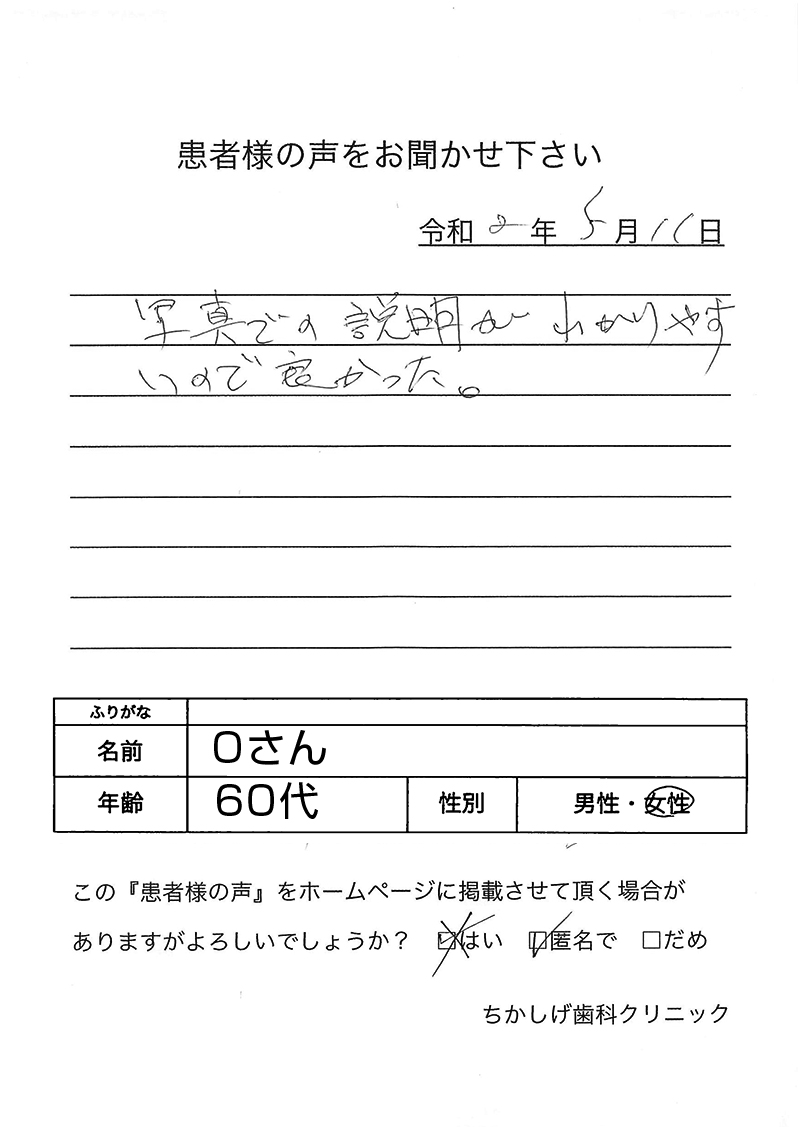 患者様の声をお聞かせ下さい
令和2年5月16日
写真での説明がわかりやす
いので良かった。
ふりがな
名前 Oさん
年齢 60代 性別 男性・女性
この『患者様の声』をホームページに掲載させて頂く場合が
ありますがよろしいでしょうか? ☑はい ☑匿名で □だめ
ちかしげ歯科クリニック